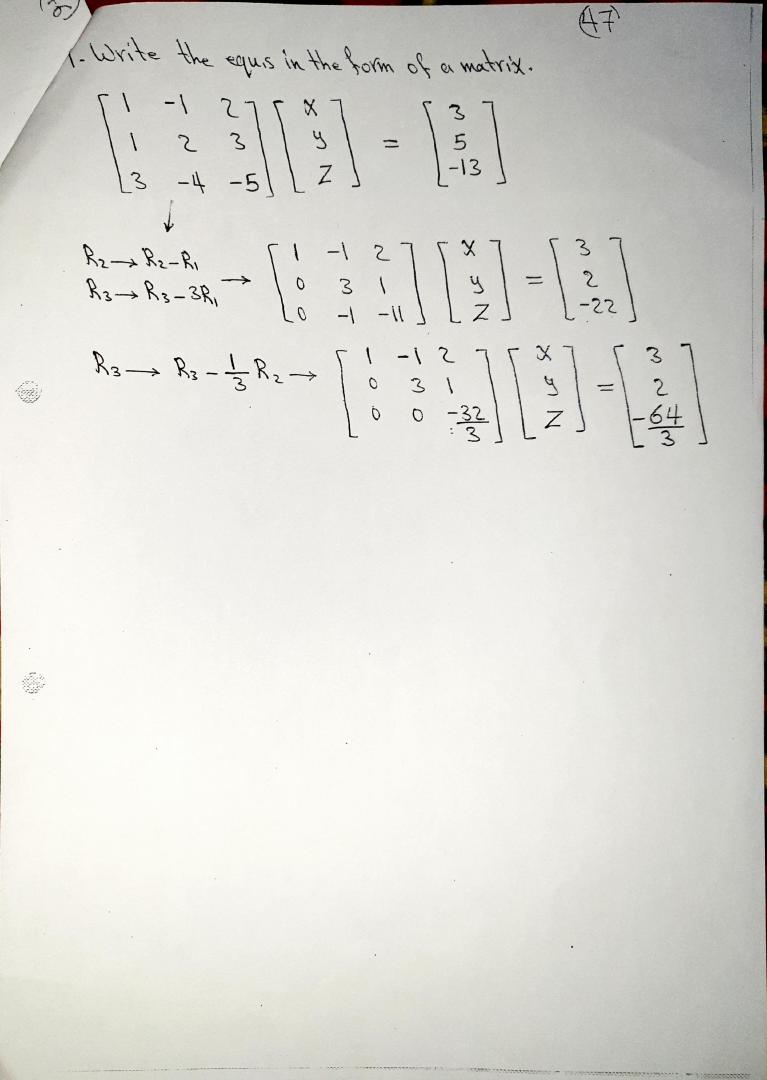 (47)
1. Write the equs in the form of a matrix.
[1 -1 2; 1 2 3; 3 -4 -5] [x; y; z] = [3; 5; -13]
↓
R₂→R₂-R₁
R₃→R₃-3R₁ → [1 -1 2; 0 3 1; 0 -1 -11] [x; y; z] = [3; 2; -22]
R₃→ R₃-1/3 R₂→ [1 -1 2; 0 3 1; 0 0 -32/3] [x; y; z] = [3; 2; -64/3]